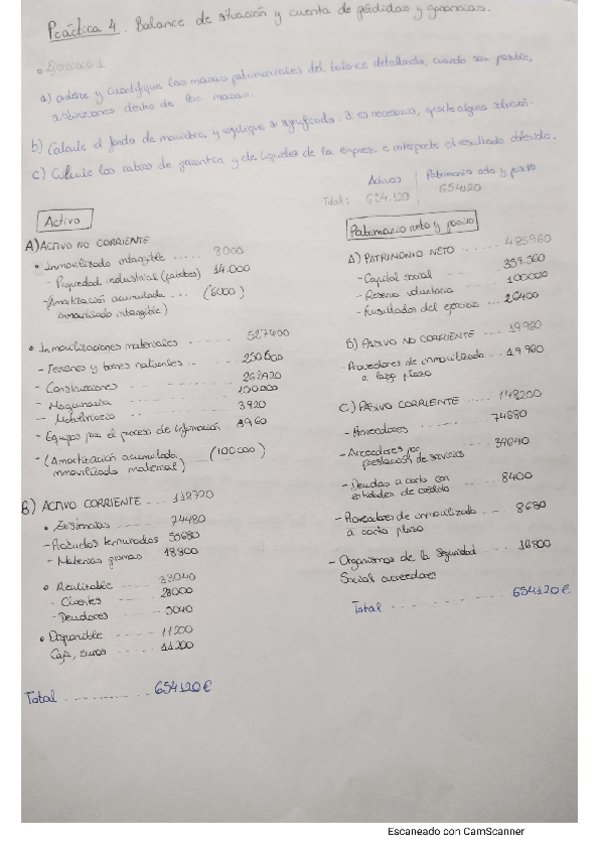 Práctica 4. Balance de situación y cuenta de pérdidas y ganancias.
• Ejercicio 1
a) ordene y cuantifique las masas patrimoniales del balance detallando, cuando sea posible,
subdivisiones dentro de las masas.
b) Calcule el fondo de maniobra y explique su significado. Si es necesario, aporte alguna solución.
c) Calcule los ratios de garantía y de liquidez de la empresa e interprete el resultado obtenido.
Activos | Patrimonio neto y pasivo
Total: 654.120 | 654120
Activo
A) ACTIVO NO CORRIENTE
• Inmovilizado intangible ..... 8000
- Propiedad industrial (patentes) 14.000
- Amortización acumulada ... (6000)
inmovilizado intangible)
• Inmovilizaciones materiales ..... 527400
- Terrenos y bienes naturales ...
- Construcciones
- Maquinaria 100000
- Mobiliario 3920
- Equipos para el proceso de información
- (Amortización acumulada, (100000)
inmovilizado material)
B) ACTIVO CORRIENTE .... 118720
• Existencias ..... 74480
- Productos terminados 55680
- Materias primas 18800
• Realizable ...... 33040
- Clientes ...... 28000
- Deudores ...... 5040
• Disponible ...... 11200
Caja, euros ..... 11200
Total ............ 654120€
Patrimonio neto y pasivo
A) PATRIMONIO NETO ...... 485960
- Capital social ......
- Reserva voluntaria .... 100000
- Resultados del ejercicio ... 26400
B) PASIVO NO CORRIENTE ... 19960
- Proveedores de inmovilizado .... 19960
a largo plazo
C) PASIVO CORRIENTE .... 148200
- Proveedores ........ 74680
- Acreedores por
prestación de servicios
- Deudas a corto con ..... 8400
entidades de crédito
- Proveedores de inmovilizado ... 8680
a corto plazo
- Organismos de la Seguridad ... 16800
Social acreedores
Total .............. 654120€
Escaneado con CamScanner